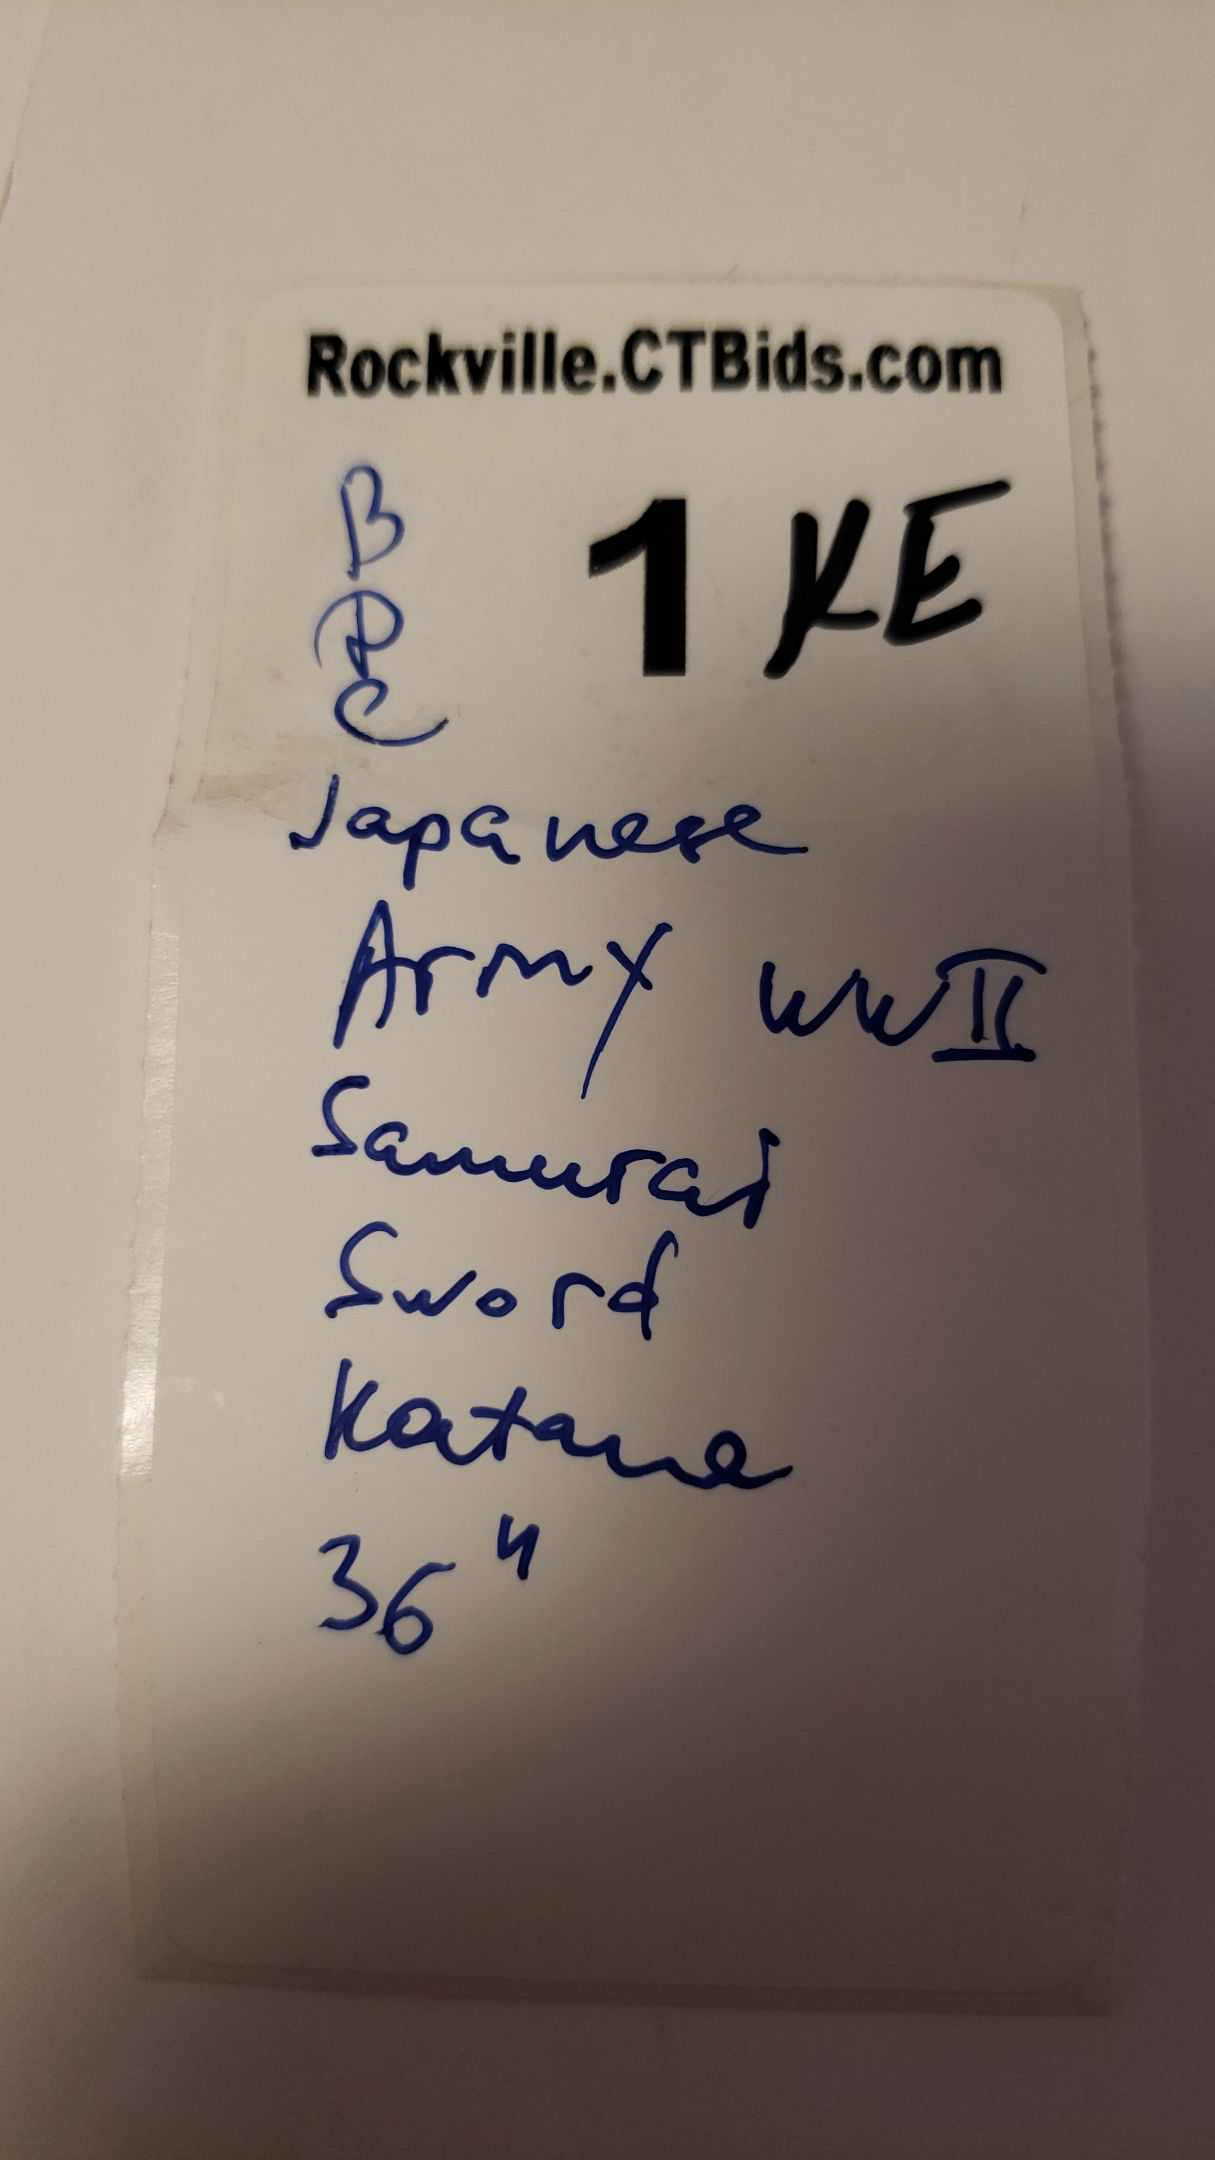 Rockville.CTBids.com
B 1 KE
P
C
Japanese
Army WWII
Samurai
Sword
Katana
36"